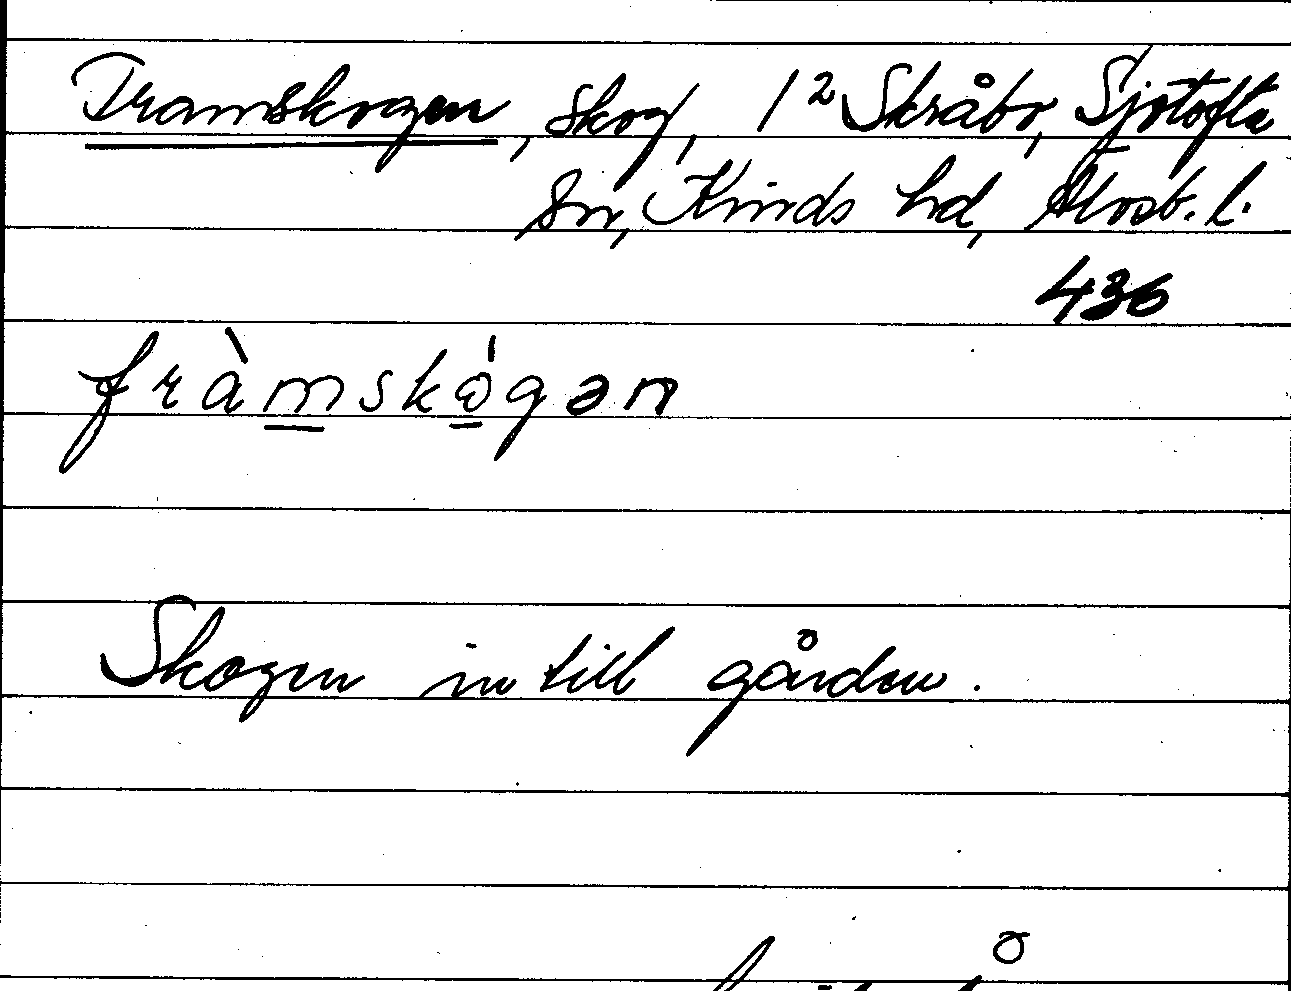 Framskogen, skog, 1² Skråbo, Sjötofta
sn, Kinds hd, Älvsb. l.
436
fràmskógən
Skogen in till gården.